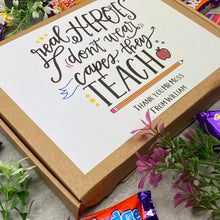 real HEROES
don't wear
capes they
TEACH
THANK YOU MR MOSS
FROM WILLIAM